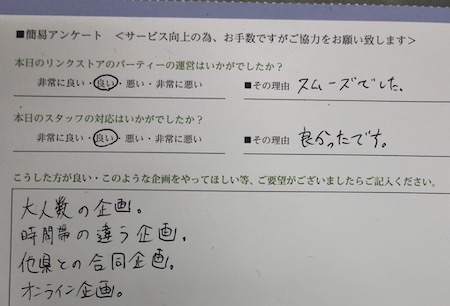 ■簡易アンケート <サービス向上の為、お手数ですがご協力をお願い致します>
本日のリンクストアのパーティーの運営はいかがでしたか?
非常に良い・良い・悪い・非常に悪い ■その理由 スムーズでした。
本日のスタッフの対応はいかがでしたか?
非常に良い・良い・悪い・非常に悪い ■その理由 良かったです。
こうした方が良い・このような企画をやってほしい等、ご要望がございましたらご記入ください。
大人数の企画。
時間帯の違う企画。
他県との合同企画。
オンライン企画。